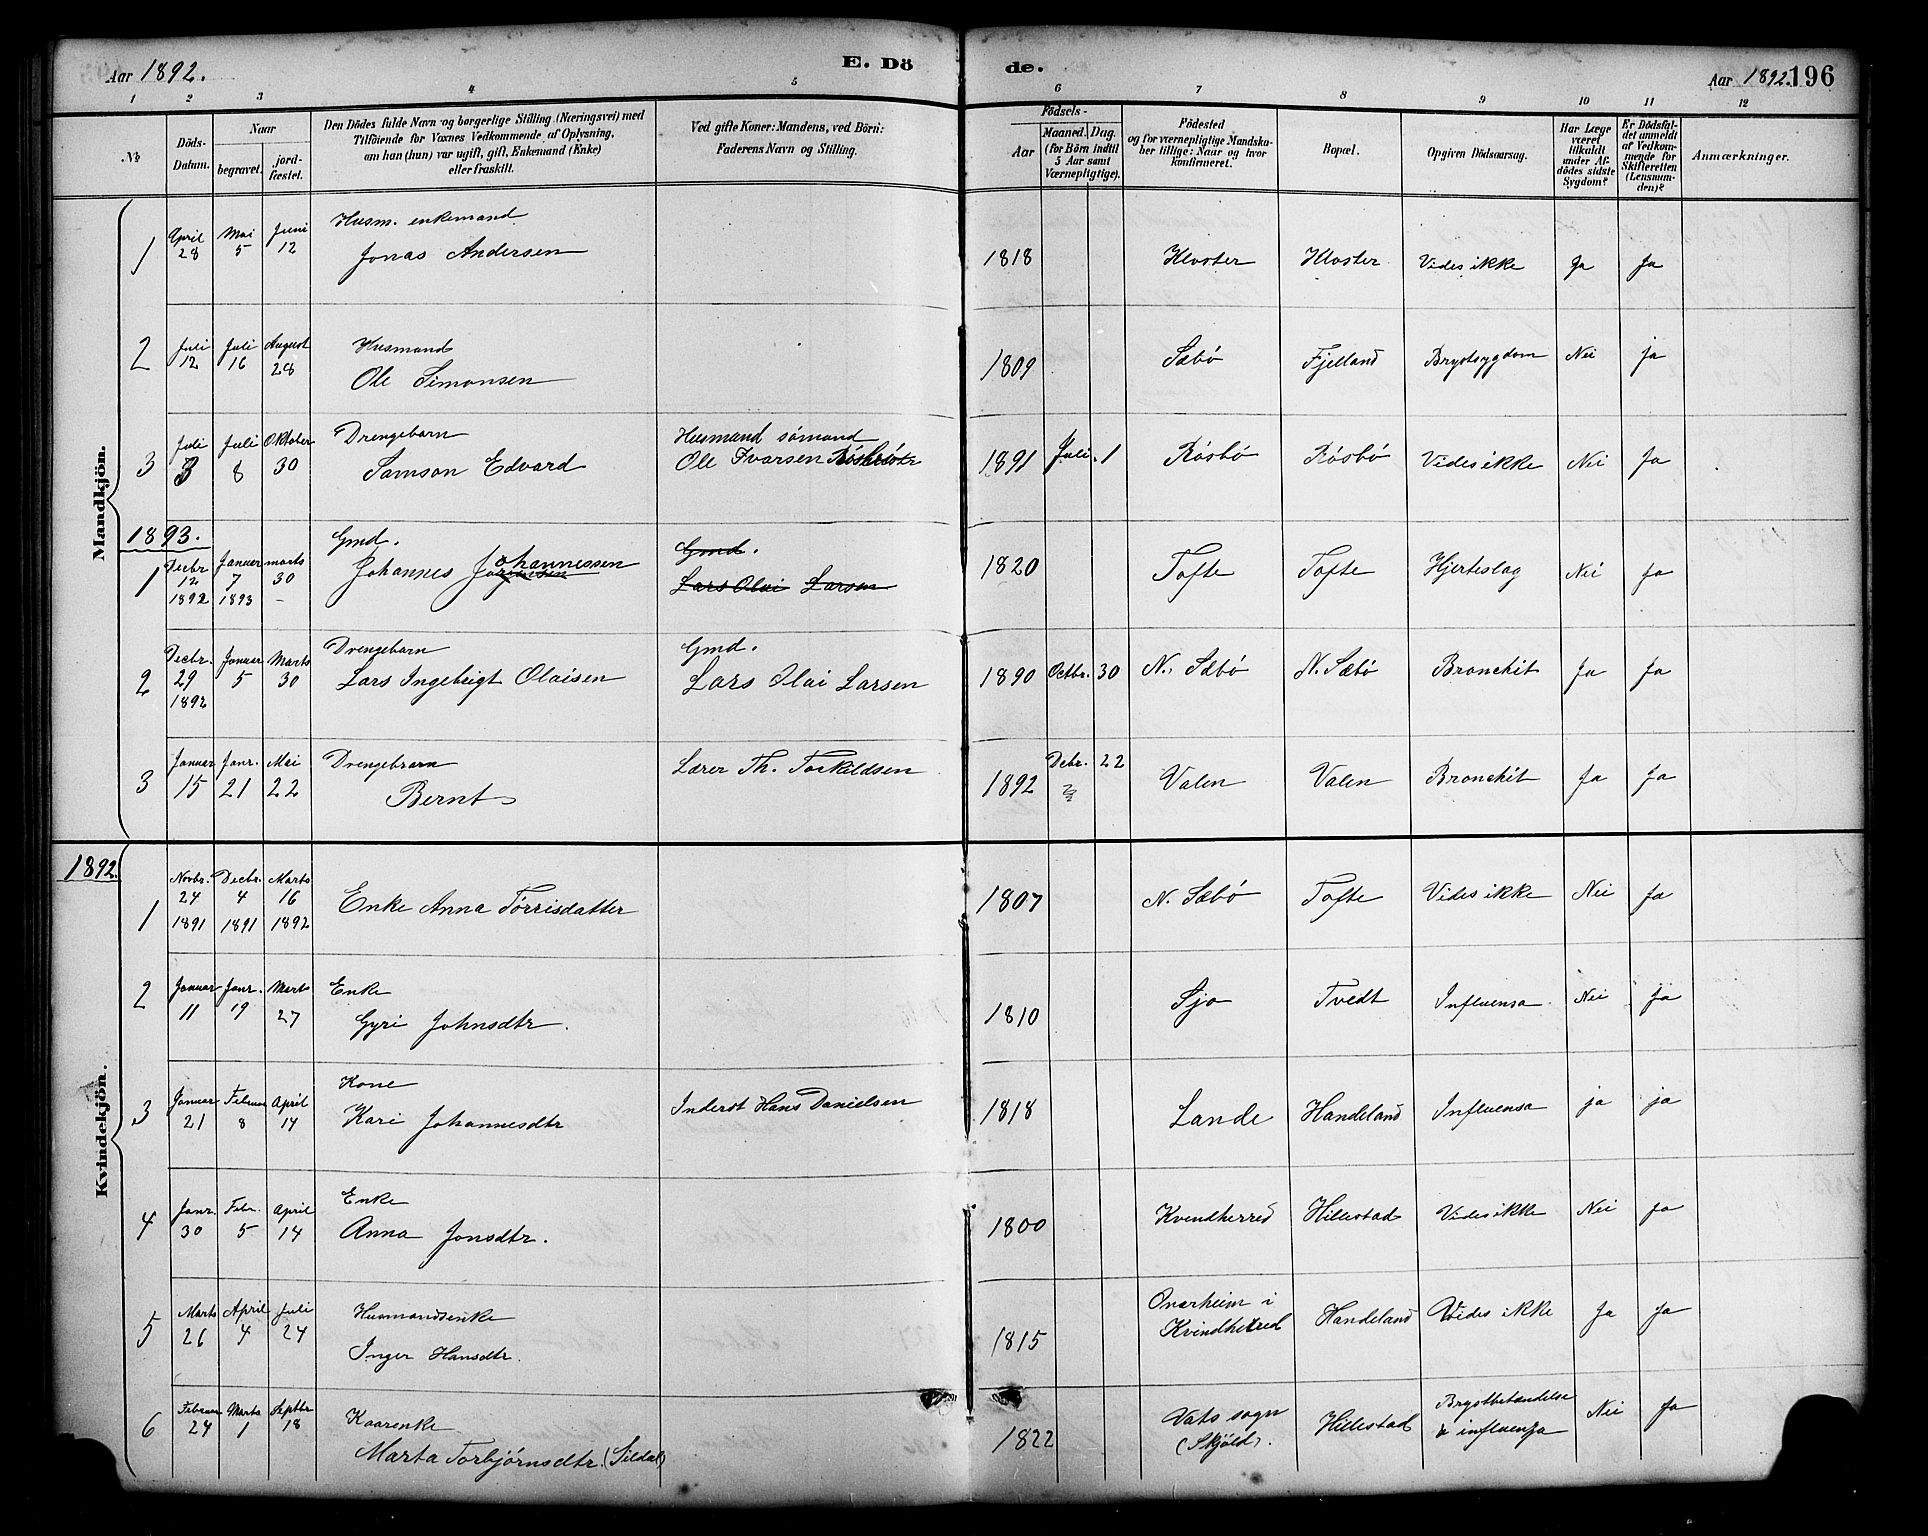 Aar 1892. E. Dö de. Aar 1892. 196
1 2 3 4 5 6 7 8 9 10 11 12
№
Döds-Datum.
Naar
begravet.
jord-fæstet.
Den Dödes fulde Navn og borgerlige Stilling (Næringsvei) med
Tilföiende för Voxnes Vedkommende af Oplysning,
om han (hun) var ugift, gift, Enkemand (Enke)
eller fraskilt.
Ved gifte Koner: Mandens, ved Börn:
Faderens Navn og Stilling.
Födsels-
Aar
Maaned. Dag.
(for Börn indtil
5 Aar samt
Værnepligtige).
Födested
og for værnepligtige Mandska-
ber tillige: Naar og hvor
konfirmeret.
Bopæl.
Opgiven Dödsaarsag.
Har Læge
været
tilkaldt
under Af-
dödes sidste
Sygdom?
Er Dödsfal-
det anmeldt
af Vedkom-
mende for
Skifteretten
(Lensman-
den)?
Anmærkninger.
Mandkjön.
1 April 28 Mai 5 Juni 12 Husm. enkemand
Jonas Andersen 1818 Kloster Kloster Vides ikke Ja Ja
2 Juli 12 Juli 16 August 28 Husmand
Ole Simonsen 1809 Sæbö Fjelland Brystsygdom Nei ja
3 Juli 3 Juli 8 Oktober 30 Drengebarn
Samson Edvard Husmand sömand
Ole Ivarsen 1891 Juli 1 Rösbö Rösbö Vides ikke Nei Ja
1893.
1 Decbr 12 1892 Januar 7 1893 marts 30 – Gmd.
Johannes Johannessen Gmd.
Lars Olai Larsen 1820 Tofte Tofte Hjerteslag Nei Ja
2 Decbr. 29 1892 Januar 5 Marts 30 Drengebarn
Lars Ingebrigt Olaisen Gmd.
Lars Olai Larsen 1890 Octbr. 30 N. Sæbö N. Sæbö Bronchit Ja Ja
3 Januar 15 Janr. 21 Mai 22 Drengebrarn
Bernt Lærer Th. Torkildsen 1892 Debr. 22 Valen Valen Bronchit Ja Ja
1892.
Kvindekjön.
1 Novbr. 24 1891 Decbr. 4 1891 Marts 16 1892 Enke Anna Törrisdatter 1807 N. Sæbö Tofte Vides ikke Nei Ja
2 Januar 11 Janr. 19 Marts 27 Enke
Gyri Johnsdtr. 1810 Sjo Tvedt Influensa Nei Ja
3 Januar 21 Februar 8 April 14 Kone
Kari Johannesdtr Inderst Hans Danielsen 1818 Lande Handeland Influensa ja ja
4 Janr. 30 Febr. 5 April 14 Enke
Anna Jonsdtr. 1800 Kvendherred Hillestad Vides ikke Nei Ja
5 Marts 26 April 4 Juli 24 Husmandsenke
Inger Hansdtr. 1815 Onarheim i
Kvindherred Handeland Vides ikke Ja Ja
6 Februar 24 Marts 1 Septbr 18 Kaarenke
Marta Torbjörnsdtr. (Sildal) 1822 Vats sogn
(Skjöld). Hillestad Brystbetændelse
& influenza Nei Ja